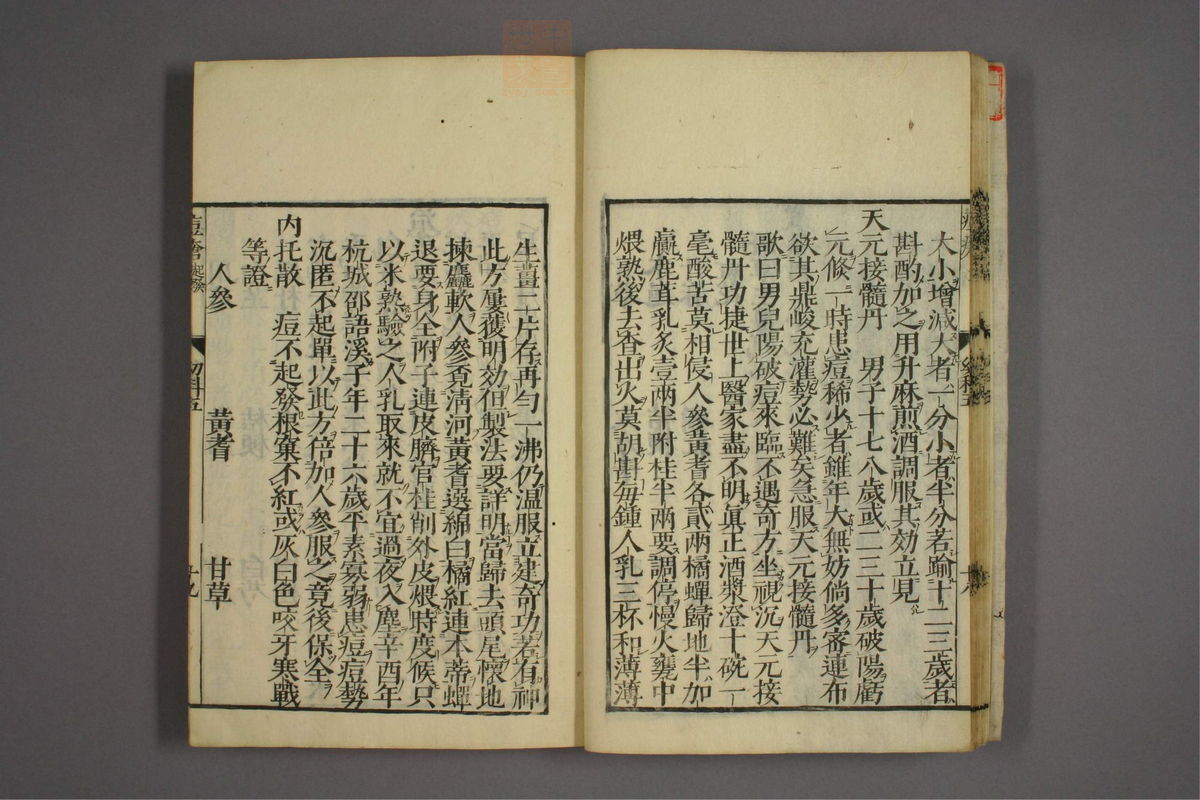 大小增減大者一分小者半分若踰十二三歲者
斟酌加之用升麻煎酒調服其効立見
天元接髓丹　男子十七八歲或二三十歲破陽虧
元倏一時患痘稀少者雖年大無妨倘多審連布
欲其鼎峻充灌勢必難矣急服天元接髓丹
歌曰男兒陽破痘來臨不遇奇方坐視沉天元接
髓丹功捷世上醫家盡不明眞正酒漿澄十碗一
毫酸苦莫相侵人參黃耆各貳兩橘蟬歸地半加
羸鹿茸乳炙壹兩半附桂半兩要調停慢火甕中
煨熟後去查出火莫胡斟每鍾人乳三杯和薄薄
生薑二片存再勻一沸仍温服立建奇功若有神
此方屢獲明効但製法要詳明當歸去頭尾懷地
揀麤軟人參覔清河黃耆選綿白橘紅連本蒂蟬
退要身全附子連皮臍官桂削外皮煨時度候只
以米熟驗之人乳取來就不宜過夜入塵辛酉年
杭城邵語溪子年二十六歲平素寡弱患痘痘勢
沉匿不起單以此方倍加人參服之竟後保全
内托散　痘不起發根窠不紅或灰白色咬牙寒戰
等證
人參　黃耆　甘草
痘瘡起發　幼科五　十九